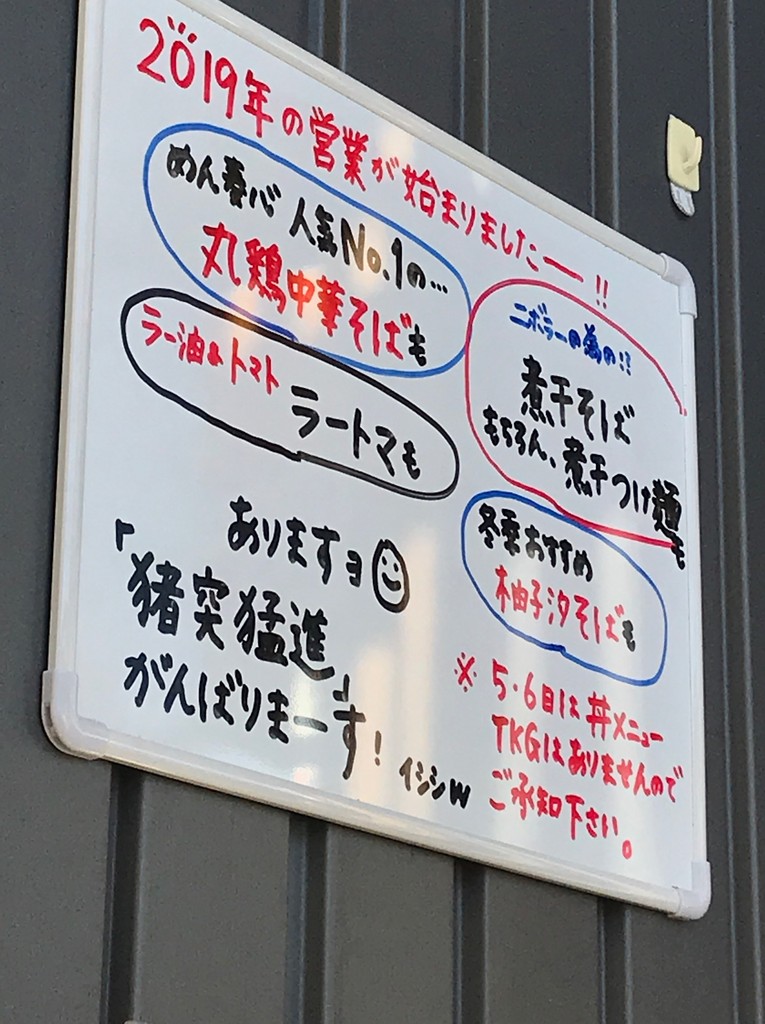 2019年の営業が始まりましたー!!
めん奏心 人気No.1の…
丸鶏中華そばも
ラー油&トマト
ラートマも
ニボラーの為の!?
煮干そば
もちろん、煮干つけ麺も
冬季おすすめ
柚子汐そばも
ありますヨ
「猪突猛進」
がんばりまーす!
イシシw
※ 5・6日は丼メニュー
TKGはありませんので
ご承知下さい。